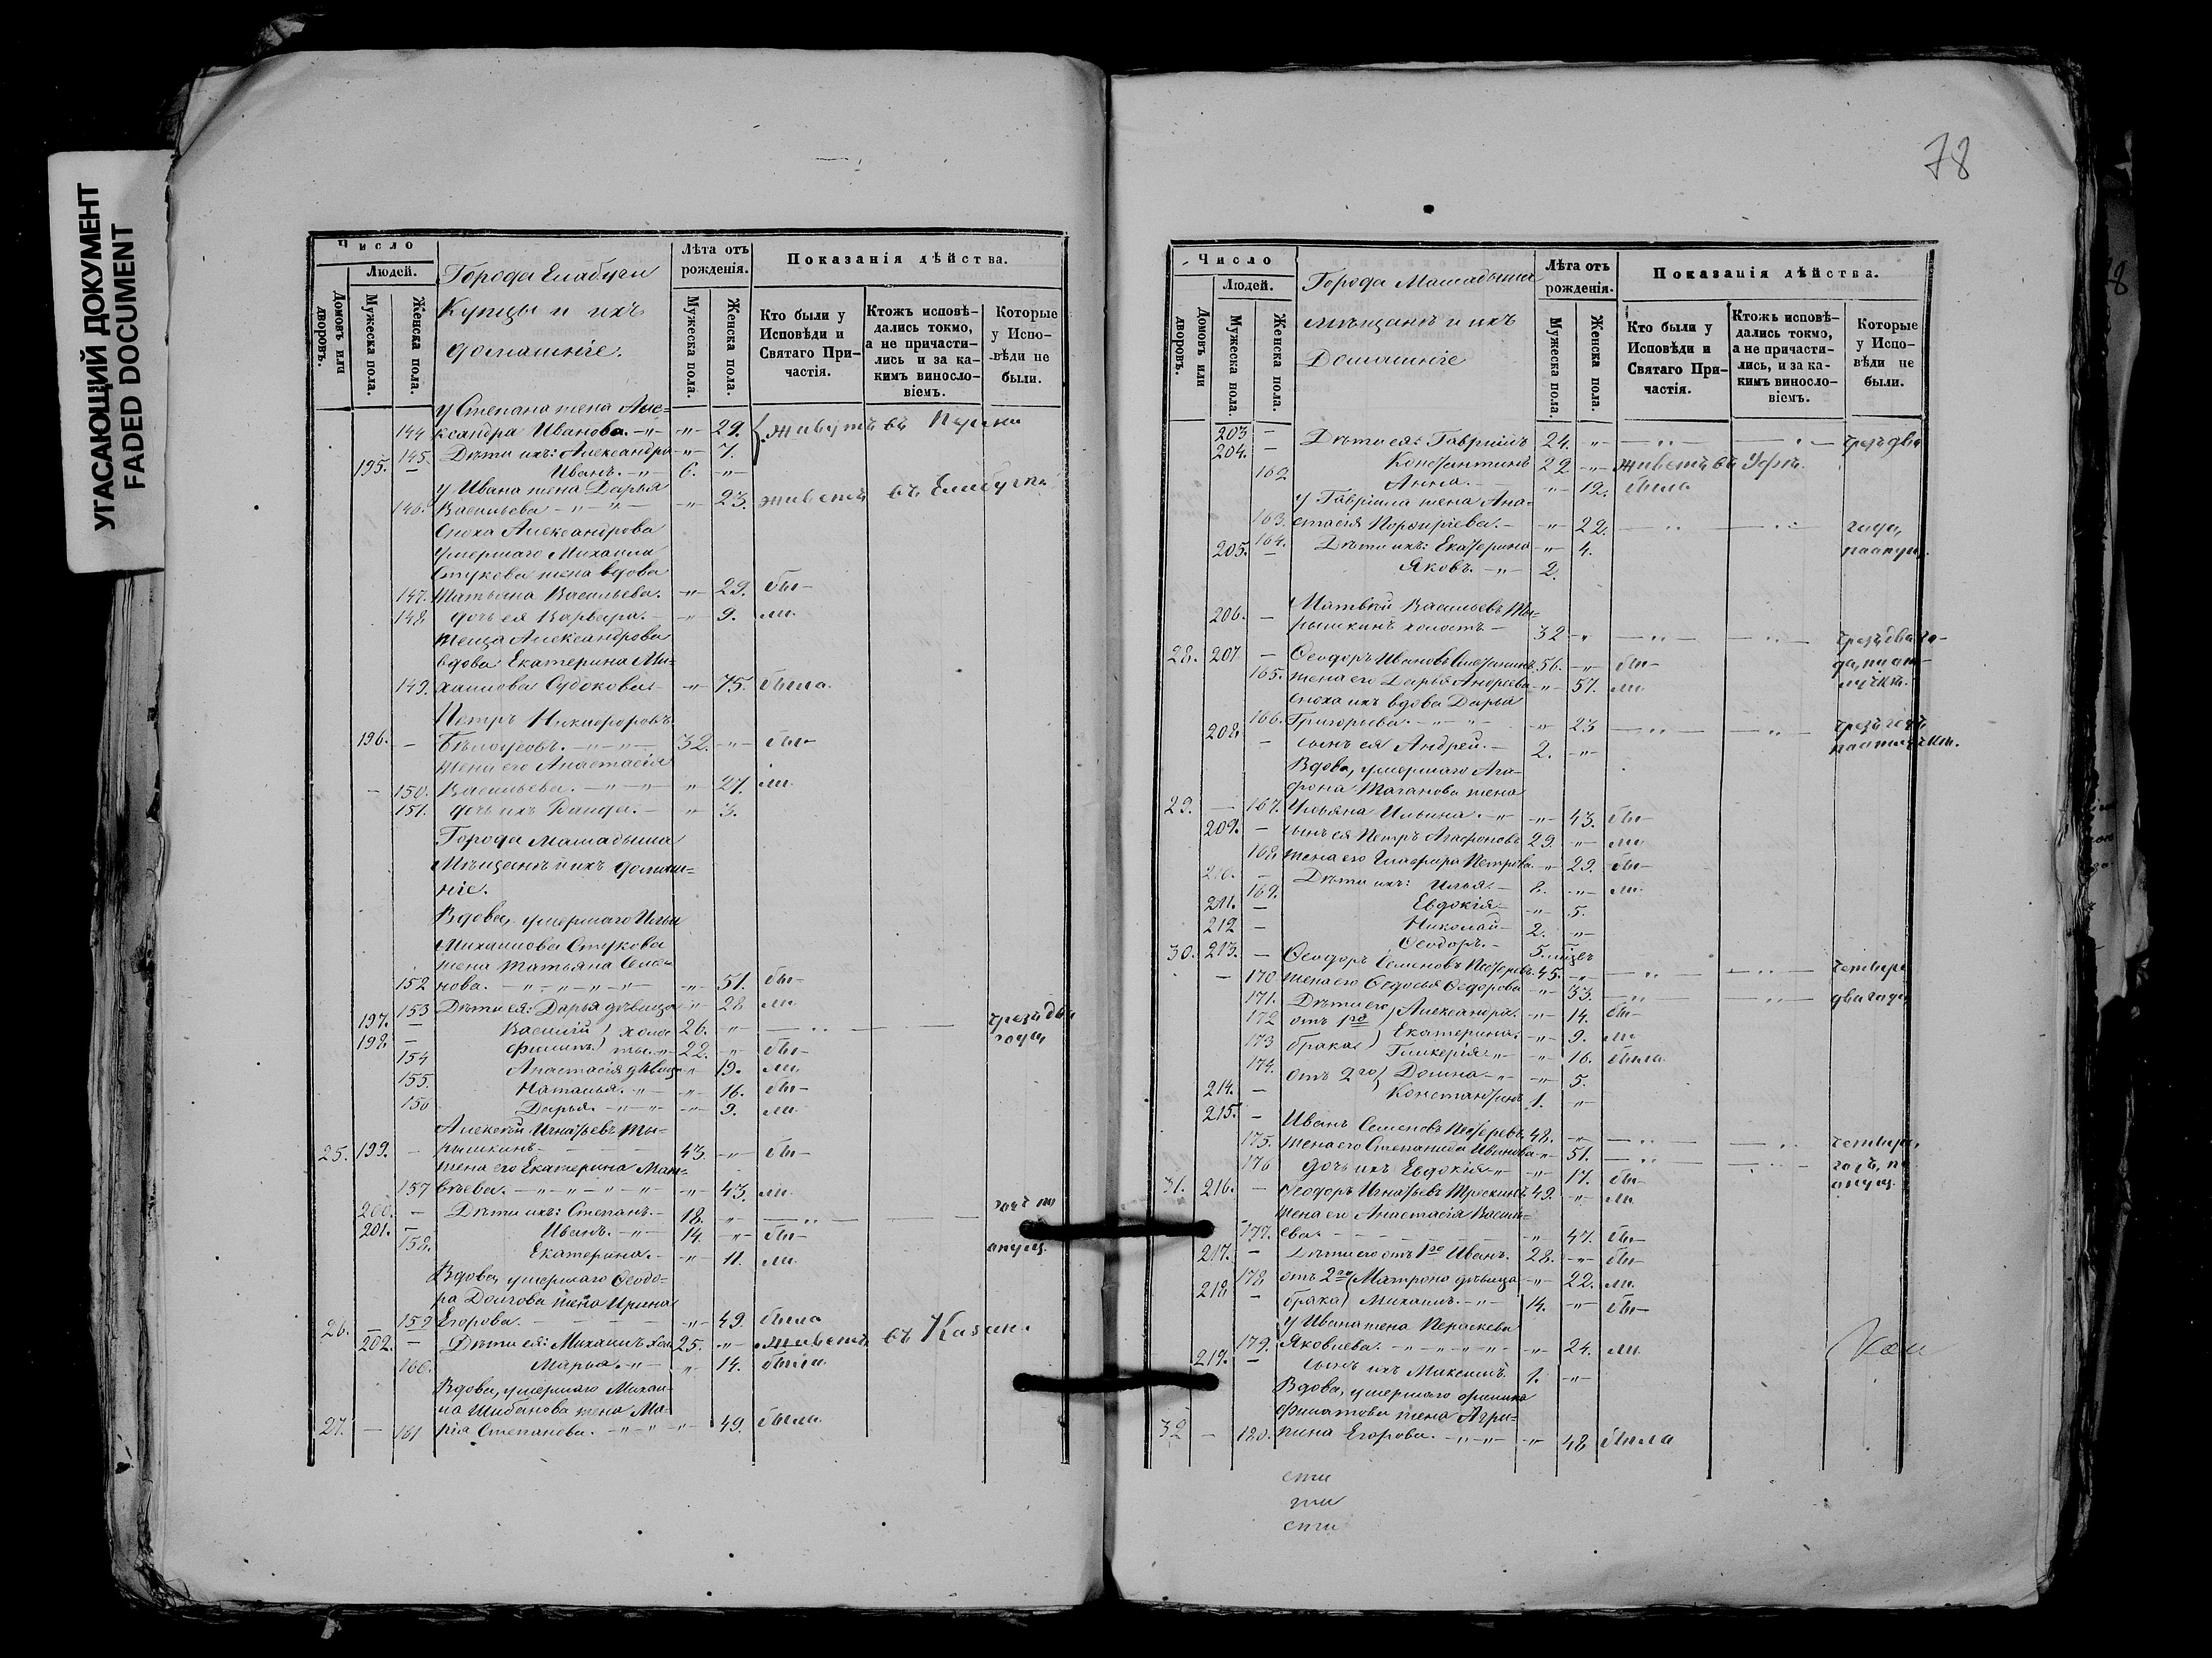 УГАСАЮЩИЙ ДОКУМЕНТ
FADED DOCUMENT
Число
Людей.
Домовъ или дворовъ.
Мужеска пола.
Женска пола.
Города Елабуги
Купцы и ихъ
домашніе.
Лѣта отъ рожденія.
Мужеска пола.
Женска пола.
Показанія дѣйства.
Кто были у Исповѣди и Святаго Причастія.
Ктожъ исповѣдались токмо, а не причастились и за какимъ винословіемъ.
Которые у Исповѣди не были.
у Степана жена Але-
144 ксандра Иванова. -"- -"- 29. живутъ въ
145. Дѣти ихъ: Александра -"- 7.
195. — Иванъ. -"- 6. -"-
у Ивана жена Дарья
146. Васильева -"- -"- 23. живетъ въ Елабугѣ
Сноха Александрова
умершаго Михаила
Стукова жена вдова
147. Татьяна Васильева. -"- 29. бы-
148. дочь ея Варвара. - " 9. ли.
Теща Александрова
вдова Екатерина Ми-
149. хаилова -"- 75. была.
Петръ Никифоровъ
196. — Бѣлоусовъ. -"-"- 32. -"- бы-
жена его Анастасія
— 150. Васильева. -"-"- " 27. ли.
151. дочь ихъ - " 3.
Города Мамадыша
Мѣщанѣ и ихъ домаш-
ніе.
Вдова, умершаго Ильи
Михаилова Стукова
жена Татьяна Семе-
152 нова. -"-"-"-"- -"- 51. бы-
153 Дѣти ея: Дарья дѣвица -"- 28. ли.
197. — Василій) холос 26. -"- —"— — — чрезъ два
198. — Филиппъ) ты.-"- 22. -"- бы- года,
154 Анастасія дѣвица " 19. ли.
155. Наталья. -"- -"- 16. бы-
156 Дарья. -"-"- -"- 9. ли.
Алексѣй Игнатьевъ Ты-
25. 199. - рышкинъ - - - - 43. -"- бы-
жена его Екатерина Мат-
157 вѣева. -"-"-"-"- -"- 43. ли.
200. — Дѣти ихъ: Степанъ. - 18. " —"— — —
201. — Иванъ. -"- 14. -"- бы-
158. Екатерина. - -"- 11. ли. опущ.
Вдова, умершаго Ѳеодо-
ра Долгова жена Ирина
26. — 159 Егорова. - - - - -"- 49. была
202. — Дѣти ея: Михаилъ хол 25. -"- живетъ въ Казан.
160. Марья. -"- " 14. была.
Вдова, умершаго Михаи-
ла Шибанова жена Ма-
27. — 161 рія Степанова. -"-"- -"- 49. была.
78
Число
Людей.
Домовъ или дворовъ.
Мужеска пола.
Женска пола.
Города Мамадыша
мѣщанѣ и ихъ
Домашніе
Лѣта отъ рожденія.
Мужеска пола.
Женска пола.
Показанія дѣйства.
Кто были у Исповѣди и Святаго Причастія.
Ктожь исповѣдались токмо, а не причастились, и за какимъ винословіемъ.
Которые у Исповѣди не были.
203 — Дѣти ея: Гавріилъ 24. -"- —"— —"— чрезъ два
204. — Константинъ 22 -"- живетъ въ Уфѣ.
162 Анна. - -"- 12. была
у Гавріила жена Ана-
163. стасія Порфиріева. - -"- 22. —"— —"— года,
164. Дѣти ихъ: Екатерина -"- 4. по опущ.
205. — Яковъ. -"- 2.
Матвѣй Васильевъ Ты-
206. — рышкинъ холостъ - 32 -"- —"— —"— чрезъ два го-
28. 207. — Ѳеодоръ Ивановъ 56. -"- бы- да, по от-
165. жена его Дарья Андреева -"- 57. ли. лучкѣ.
сноха ихъ вдова Дарья
166. Григорьева. -"-"- -"- 23 —"— —"— чрезъ годъ
208. — сынъ ея Андрей. - 2. -"- по отлучкѣ.
Вдова, умершаго Ага-
фона Таганова жена
29. — 167. Ульяна Ильина. -"- -"- 43. бы-
209. — сынъ ея Петръ Агафоновъ 29. -"- ли.
168. жена его Глафира Петрова. -"- 29. бы-
210. — Дѣти ихъ: Илья. - 8. -"- ли.
169. Евдокія - -"- 5.
211. — Николай - 2. -"-
212 — Ѳеодоръ. - 5. мѣсяц.
30. 213. — Ѳеодоръ Семеновъ 45. -"- —"— —"— четыре
— 170 жена его Ѳедосья Ѳедорова -"- 33. —"— —"— два года,
171. Дѣти его) Александра. -"- 14. бы-
172 отъ 1го) Екатерина. -"- 9. ли.
173 брака) Гликерія -"- -"- 16. была.
174. отъ 2го) Домна. -"- -"- 5.
214. — Константинъ 1. -"-
215. — Иванъ Семеновъ 48. -"- —"— —"— четыре,
175. жена его Степанида Иванова -"- 51. —"— —"— годъ, по
176 дочь ихъ Евдокія -"- -"- 17. бы- опущ.
31. 216. — Ѳеодоръ Игнатьевъ 49. -"- ли.
жена его Анастасія Василь-
177. ева. - - - - - -"- 47. бы-
217. — Дѣти его отъ 1го Иванъ. 28. -"- бы-
178 отъ 2го (Матрона дѣвица -"- 22. ли.
218 — брака) Михаилъ. -"- 14. -"- бы-
у Ивана жена Пераскева
179. Яковлева. -"-"-"-"- -"- 24. ли.
219. — сынъ ихъ Максимъ 1. -"-
Вдова, умершаго Филиппа
Филатова жена Агри-
32 — 180. пина Егорова. -"-"- -"- 48 была
сти
ти
сти